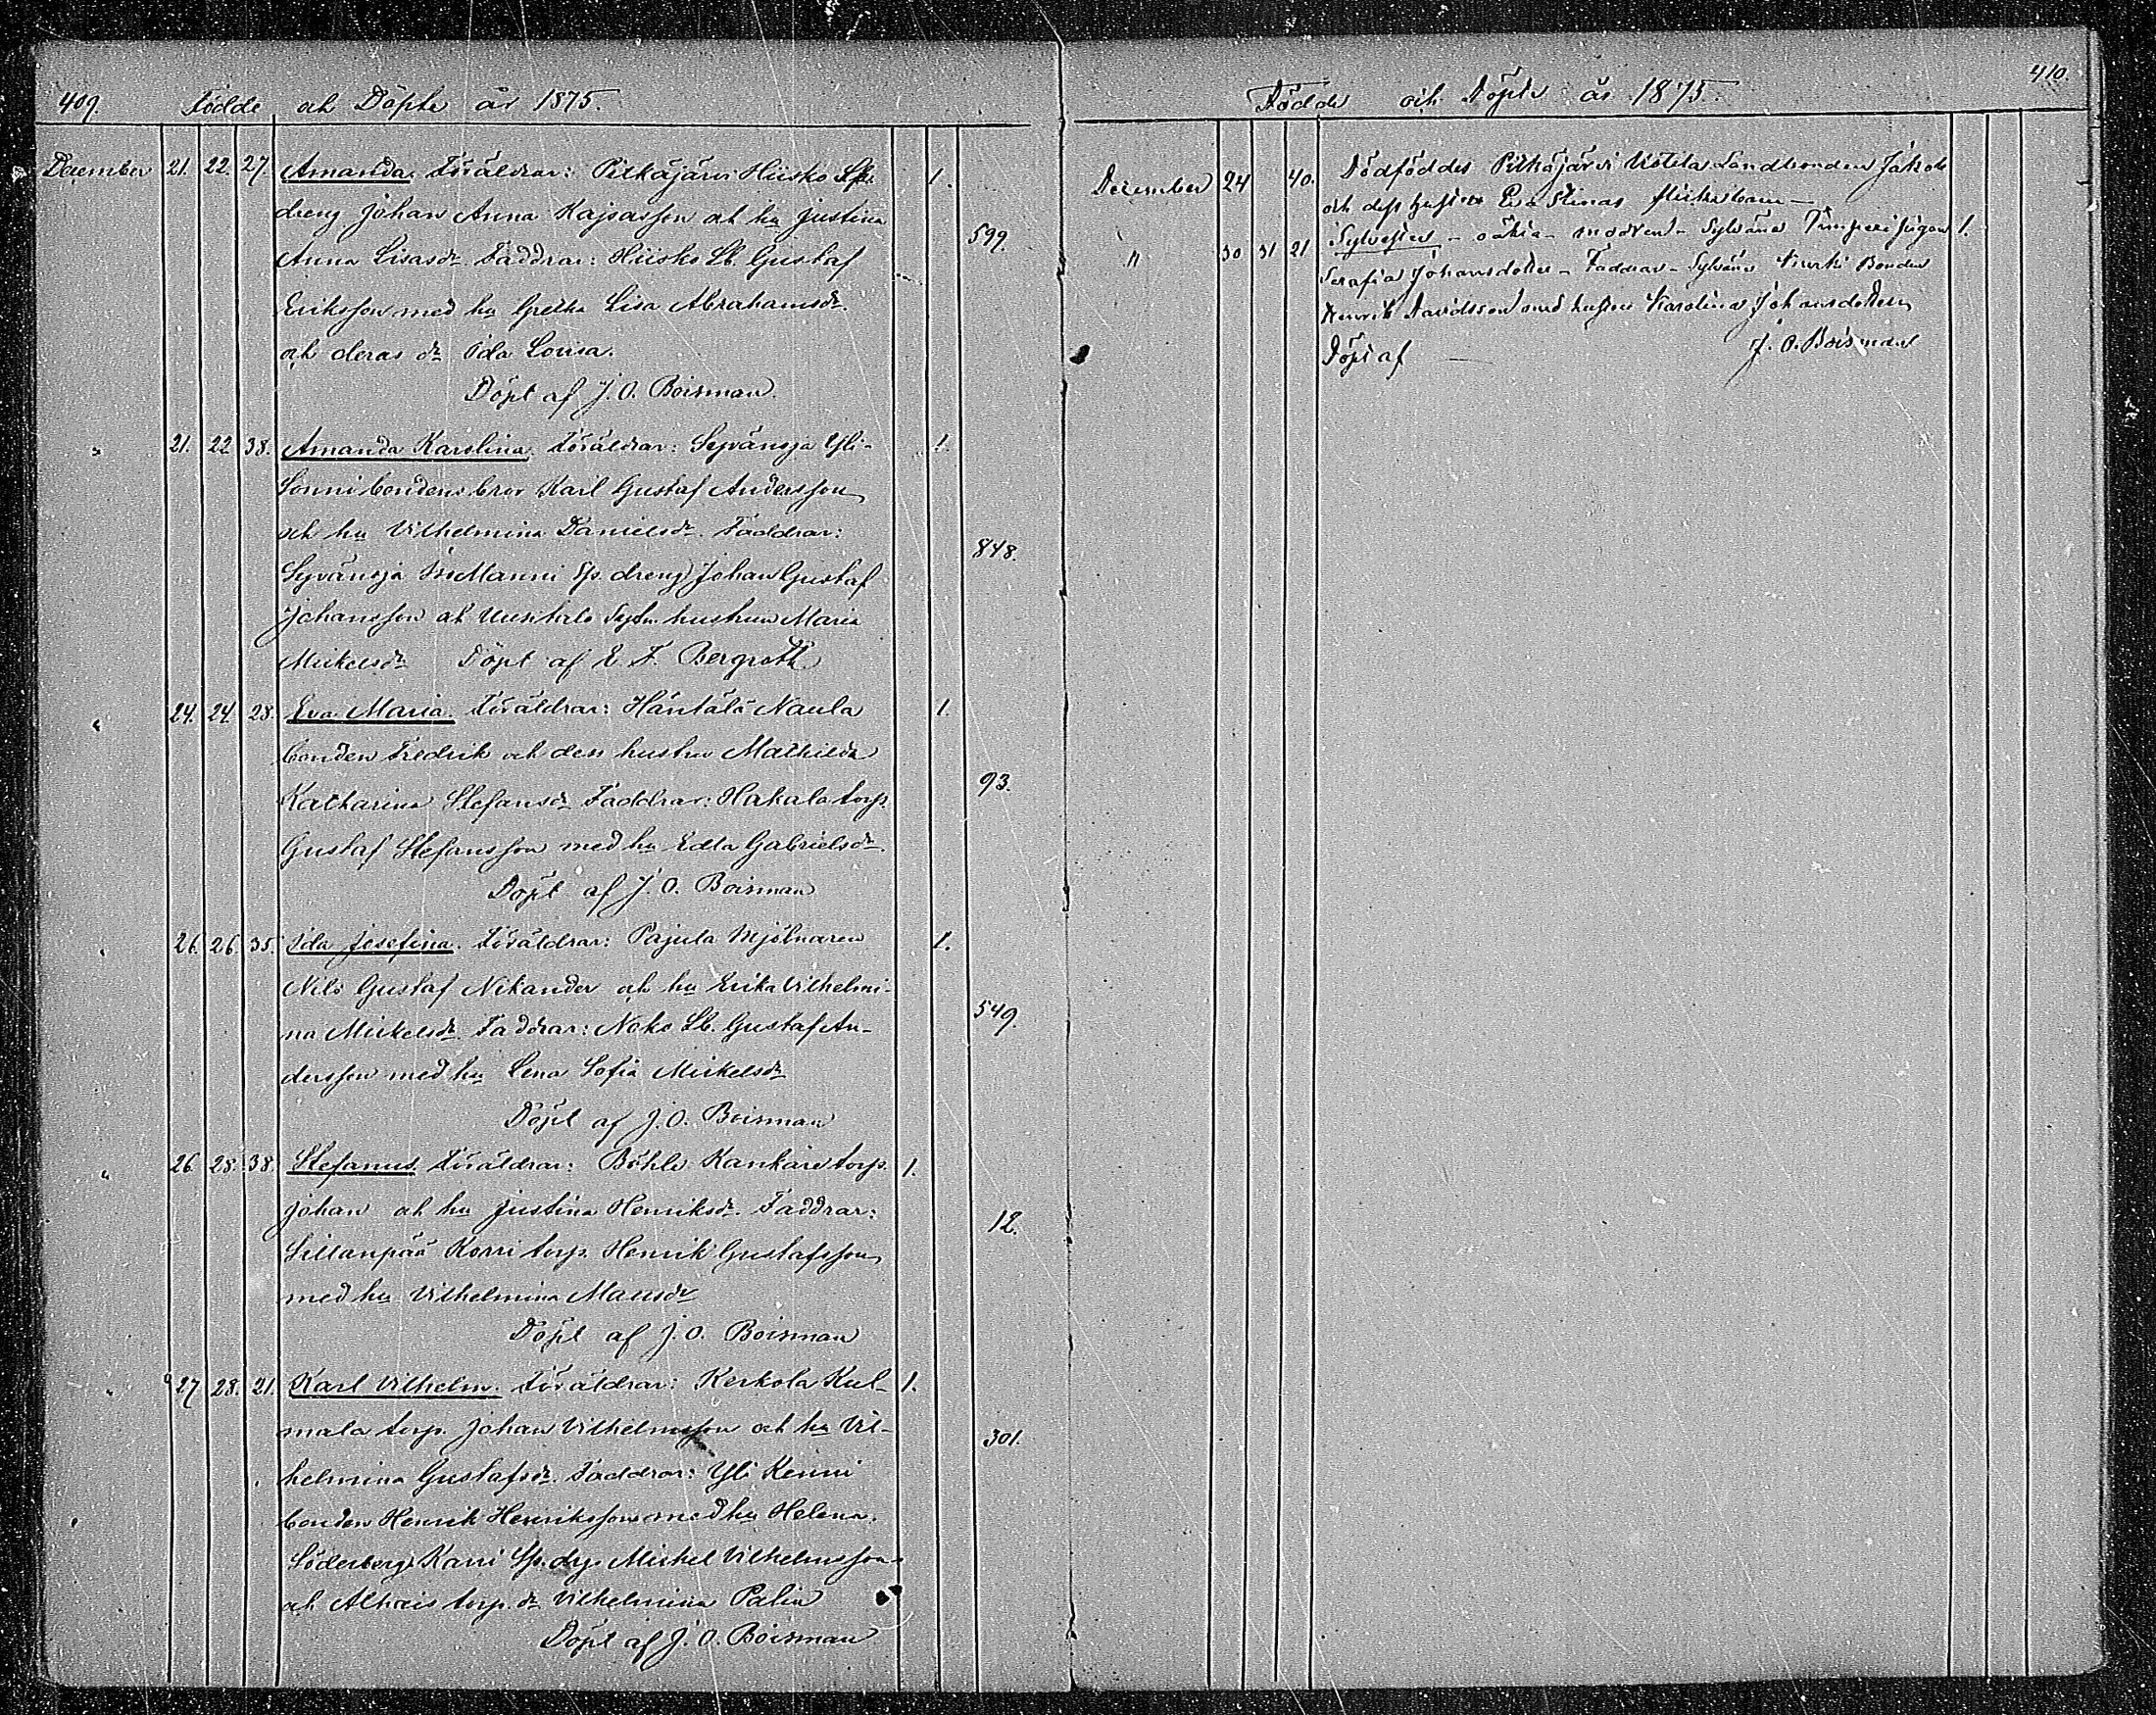 409 Födde och Döpte år 1875.
December 21. 22. 27. Amanda. Föräldrar: Pitkäjärvi Hiisko Sp. 1.
dreng Johan Anna Kajsasson och hu Justina
599.
Anna Lisasdr. Faddrar: Hiisko Lb. Gustaf
Eriksson med hu Gretha Lisa Abrahamsdr.
och deras dr Ida Lovisa.
Döpt af J. O. Boisman.
" 21. 22 38. Amanda Karolina. Föräldrar: Syvänoja Yli- 1.
Sonni bondens bror Karl Gustaf Andersson
och hu Vilhelmina Danielsdr. Faddrar:
848.
Syvänoja Manni Sp. dreng Johan Gustaf
Johansson och Uusitalo hustrun Maria
Mickelsdr Döpt af E. F. Bergroth
" 24. 24. 28. Eva Maria. Föräldrar: Häntälä Naula 1.
bonden Fredrik och dess hustru Mathilda
93.
Katharina Stefansdr Faddrar: Hakala torp.
Gustaf Stefansson med hu Edla Gabrielsdr.
Döpt af J. O. Boisman
" 26. 26. 35. Ida Josefina. Föräldrar: Pajula Mjölnaren 1.
Nils Gustaf Nikander och hu Erika Vilhelmi-
549.
na Mickelsdr. Faddrar: Noko Lb. Gustaf An-
dersson med hu Lena Sofia Mickelsdr
Döpt af J. O. Boisman
" 26. 28. 38. Stefanus. Föräldrar: Böhle Kankare torp. 1.
Johan och hu Justina Henriksdr. Faddrar:
12.
Sillanpää Korri torp. Henrik Gustafsson
med hu Vilhelmina Mausdr
Döpt af J. O. Boisman
" 27 28. 21. Karl Vilhelm. Föräldrar: Kerkola Kul- 1.
mala torp. Johan Vilhelmsson och hu Vil-
301.
helmina Gustafsdr. Faddrar: Yli Kenni
bonden Henrik Henriksson med hu Helena
Söderberg, Karri Sp. drg. Mickel Vilhelmsson
och torp. dr Vilhelmina Palin
Döpt af J. O. Boisman
Födde och Döpte år 1875. 410.
December 24 40. Dödföddes Pitkäjärvi Uotila Landbonden Jakob
och dess hustru Eva Stinas flickebarn —
" 30 31 21 Sylvester — oäkta — modren — Sylvänä pigan 1.
Serafia Johansdotter — Faddrar — Sylvänä Bonden
Henrik Davidsson med hustru Karolina Johansdotter
Döpt af — J. O. Boisman